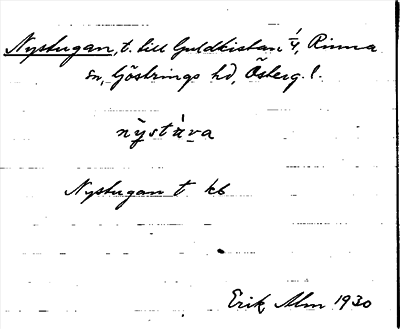 Nystugan, t. till Guldkistan 1/4, Rinna
sn, Göstrings hd, Österg. l.
nỳstùva
Nystugan t kb
Erik Alm 1930